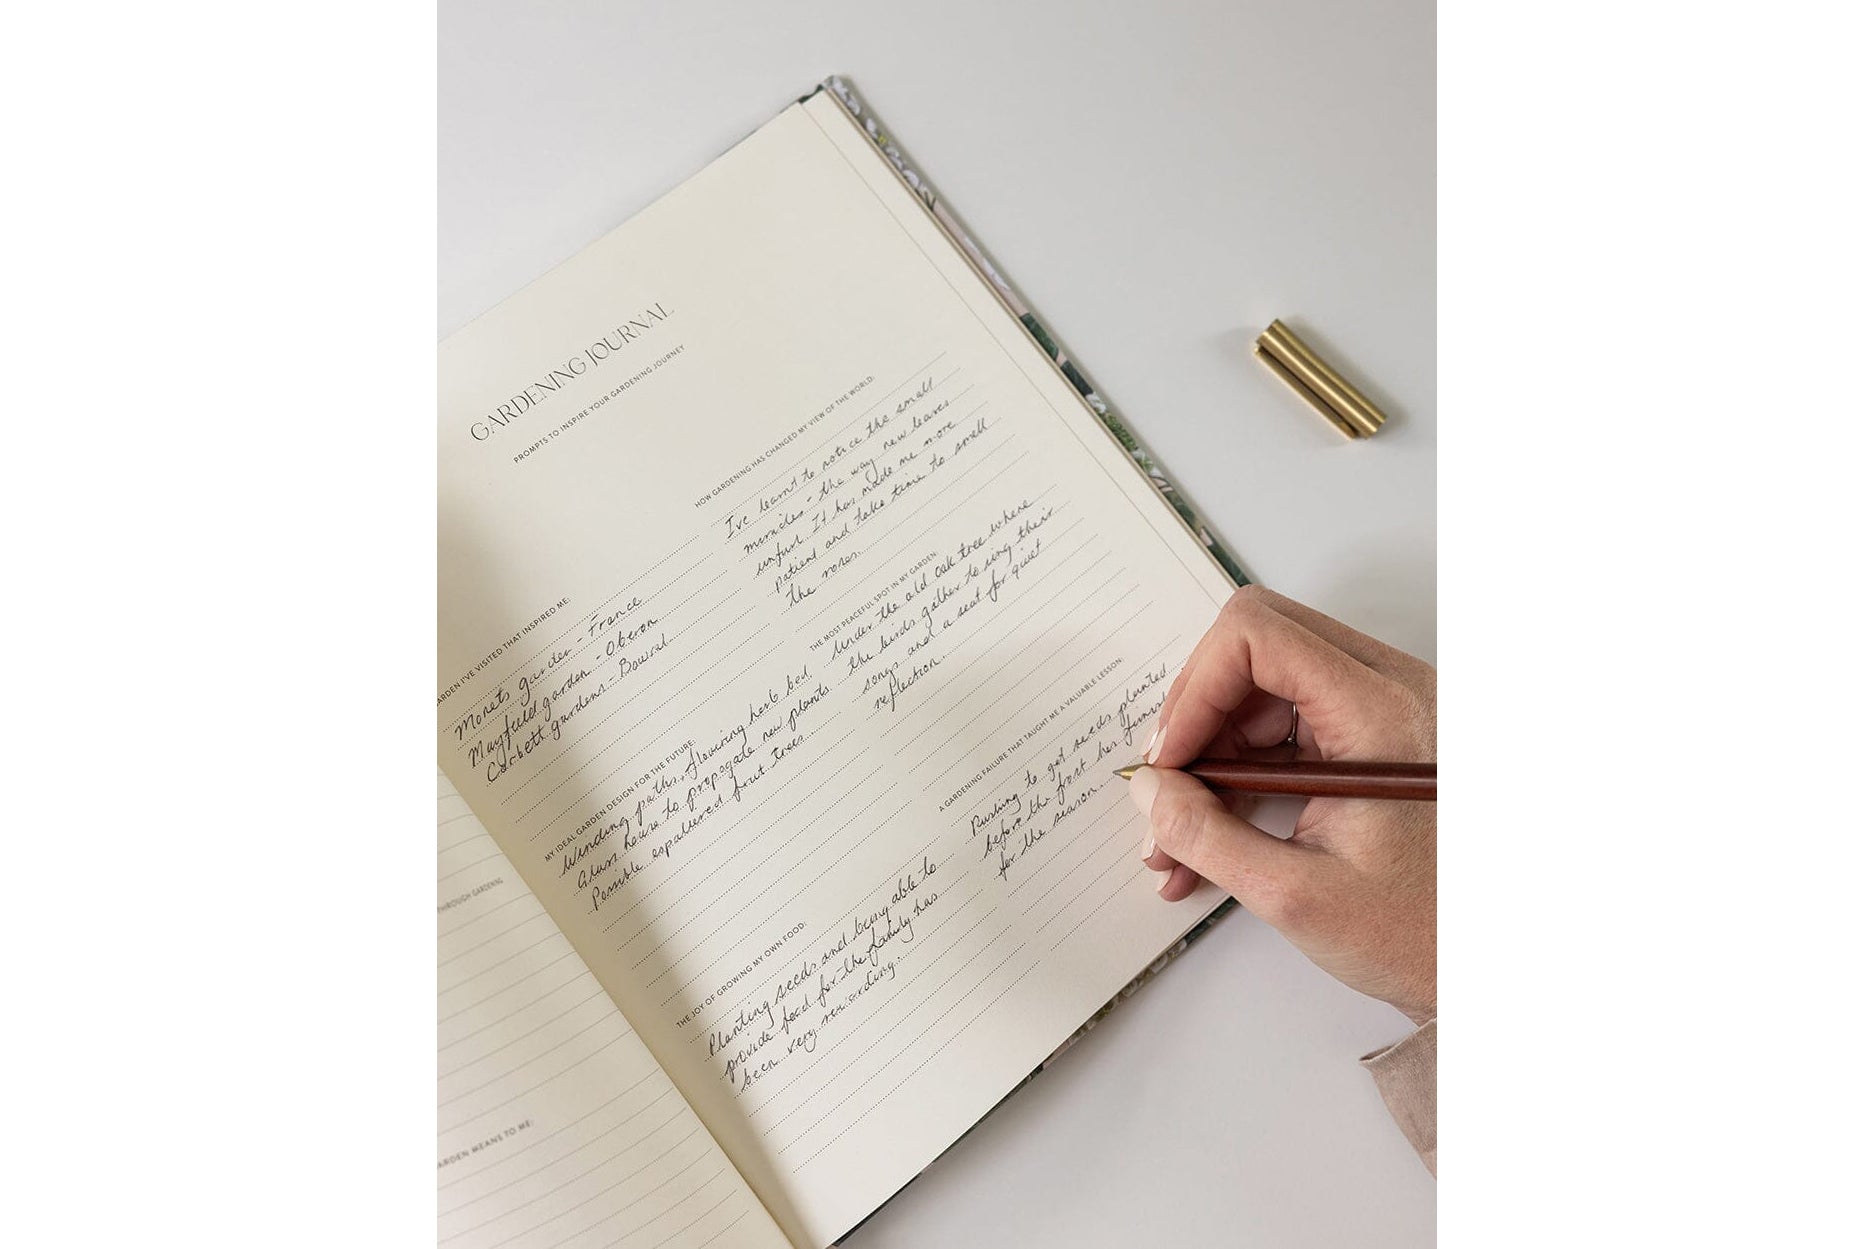 GARDENING JOURNAL
PROMPTS TO INSPIRE YOUR GARDENING JOURNEY
ARDEN I'VE VISITED THAT INSPIRED ME:
Monets garden - France
Mayfield garden - Oberon
Corbett gardens - Bowral
MY IDEAL GARDEN DESIGN FOR THE FUTURE:
Winding paths, flowering herb bed.
Glass house to propagate new plants.
Possible espaliered fruit trees
THE JOY OF GROWING MY OWN FOOD:
Planting seeds and being able to
provide food for the family has
been very rewarding.
HOW GARDENING HAS CHANGED MY VIEW OF THE WORLD:
I've learnt to notice the small
miracles - the way new leaves
unfurl. It has made me more
patient and take time to smell
the roses.
THE MOST PEACEFUL SPOT IN MY GARDEN:
Under the old oak tree where
the birds gather to sing their
songs and a seat for quiet
reflection.
A GARDENING FAILURE THAT TAUGHT ME A VALUABLE LESSON:
Rushing to get seeds planted
before the frost has
for the season.
THROUGH GARDENING
ARDEN MEANS TO ME: